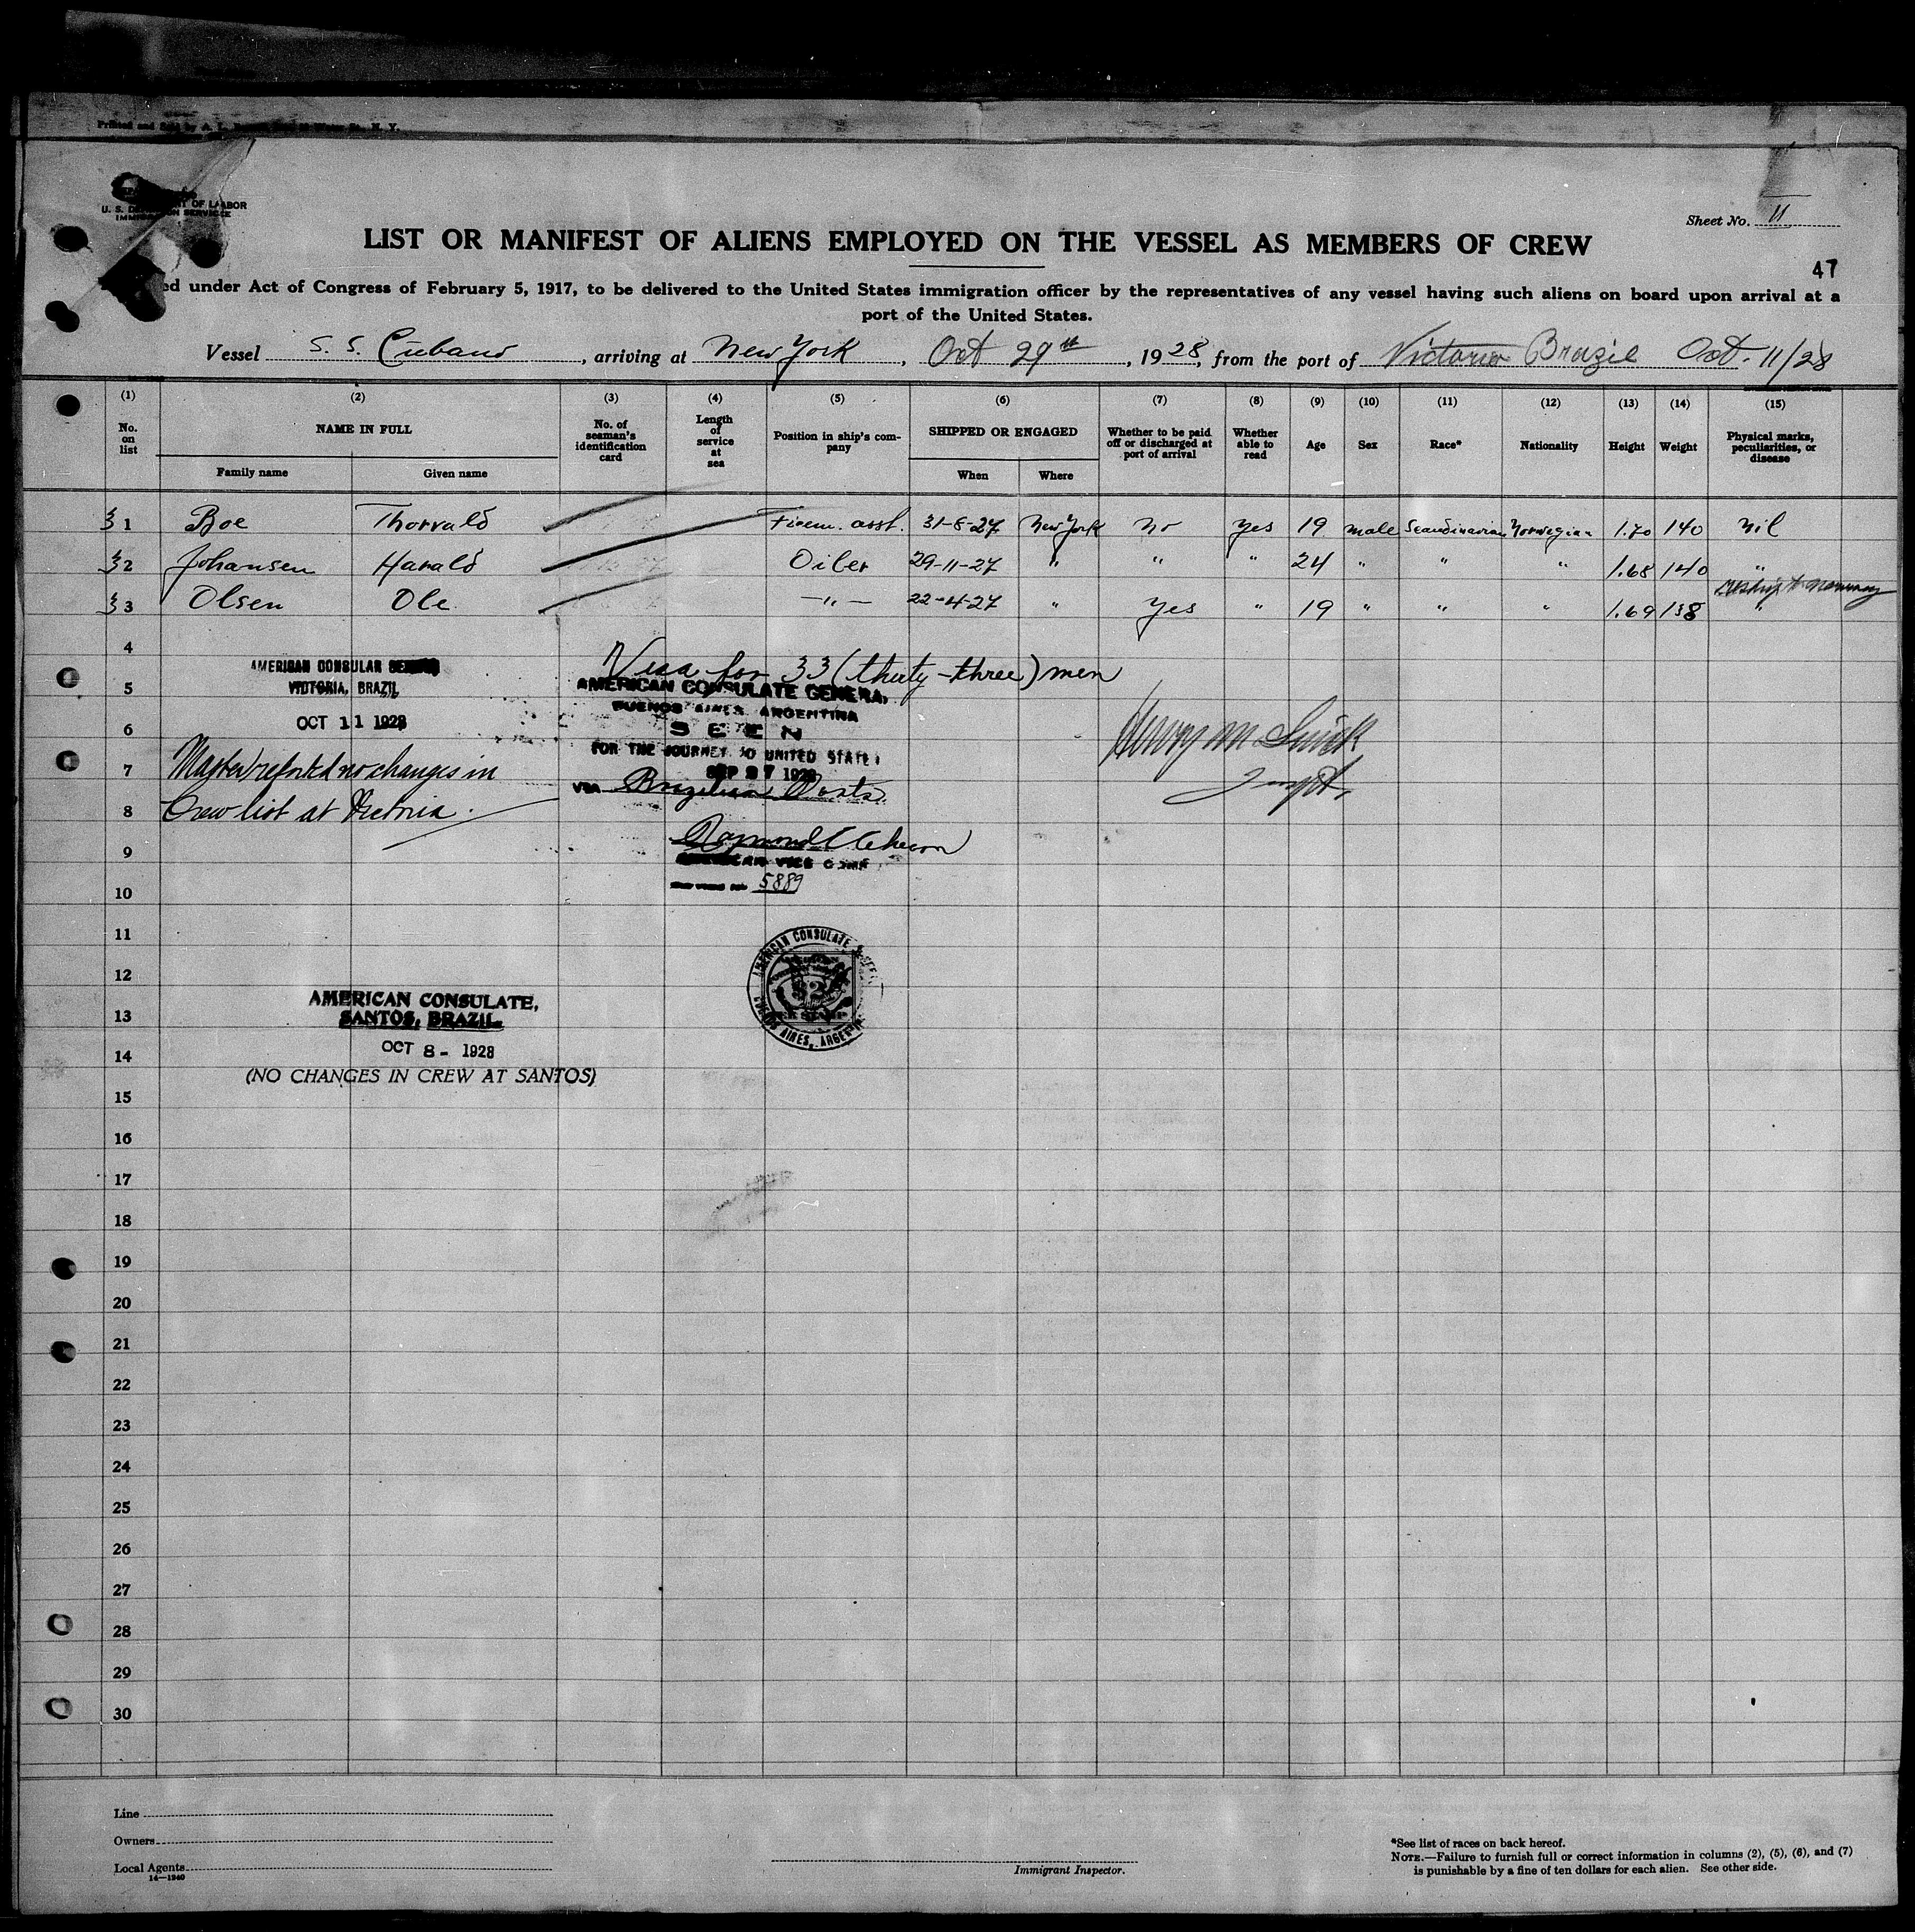 Printed and Sold by A. L. Water St., N. Y.
U. S. DEPARTMENT OF LABOR
IMMIGRATION SERVICE
Sheet No. II
LIST OR MANIFEST OF ALIENS EMPLOYED ON THE VESSEL AS MEMBERS OF CREW
47
ed under Act of Congress of February 5, 1917, to be delivered to the United States immigration officer by the representatives of any vessel having such aliens on board upon arrival at a
port of the United States.
Vessel S. S. Cubano, arriving at New York, Oct 29th, 1928, from the port of Victoria Brazil Oct. 11/28
(1) (2) (3) (4) (5) (6) (7) (8) (9) (10) (11) (12) (13) (14) (15)
No. on list NAME IN FULL No. of seaman's identification card Length of service at sea Position in ship's company SHIPPED OR ENGAGED Whether to be paid off or discharged at port of arrival Whether able to read Age Sex Race* Nationality Height Weight Physical marks, peculiarities, or disease
Family name Given name When Where
31 Boe Thorvald Firem. asst. 31-8-27 New York No Yes 19 male Scandinavian Norwegian 1.70 140 Nil
32 Johansen Harald Oiler 29-11-27 " " " 24 " " " 1.68 140 "
33 Olsen Ole —"— 22-4-27 " Yes " 19 " " " 1.69 138 " reship to Norway
4
Visa for 33 (thirty-three) men
AMERICAN CONSULAR
VICTORIA, BRAZIL
OCT 11 1928
5
AMERICAN CONSULATE GENERA,
BUENOS AIRES ARGENTINA
6
SEEN
FOR THE JOURNEY TO UNITED STATE
SEP 27 1928
VIA Brazilian Ports
7
Master reported no changes in
8
Crew list at Victoria.
Inspt.
9
AMERICAN VICE CONS
5889
10
11
AMERICAN CONSULATE GENE
BUENOS AIRES, ARGENTIN
12
13
AMERICAN CONSULATE,
SANTOS, BRAZIL.
OCT 8 - 1928
14
(NO CHANGES IN CREW AT SANTOS)
15
16
17
18
19
20
21
22
23
24
25
26
27
28
29
30
Line
Owners
Local Agents
14—1240
Immigrant Inspector.
*See list of races on back hereof.
NOTE.—Failure to furnish full or correct information in columns (2), (5), (6), and (7)
is punishable by a fine of ten dollars for each alien. See other side.